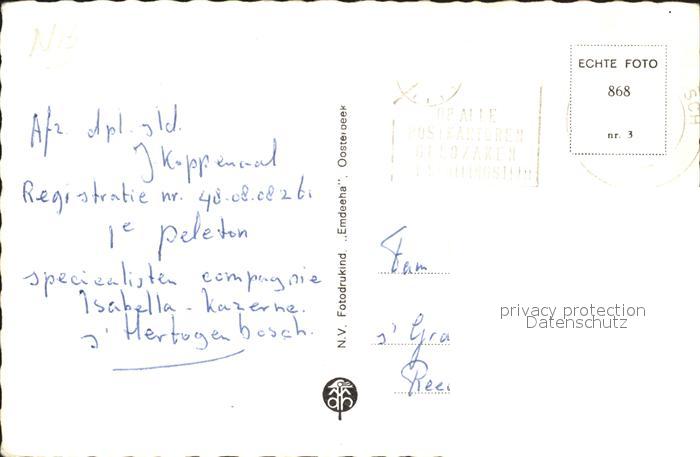 Afz. dpl. sld.
J Koppenaal
Registratie nr. 48.08.08.261
1e peleton
speciealisten compagnie
Isabella - kazerne.
s' Hertogenbosch.
N.V. Fotodrukind. „Emdeeha”, Oosterbeek
OP ALLE
POSTKANTOREN
ECHTE FOTO
868
nr. 3
SCH
Fam
s' Gra
privacy protection
Datenschutz